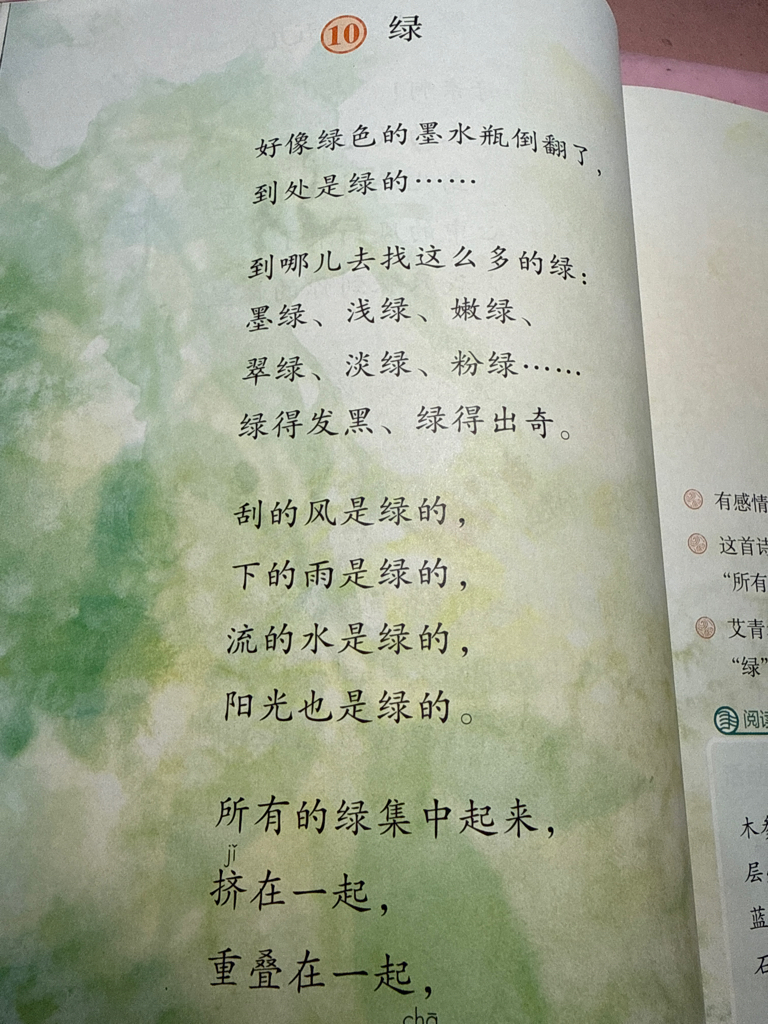 10 绿
好像绿色的墨水瓶倒翻了，
到处是绿的……
到哪儿去找这么多的绿：
墨绿、浅绿、嫩绿、
翠绿、淡绿、粉绿……
绿得发黑、绿得出奇。
刮的风是绿的，
下的雨是绿的，
流的水是绿的，
阳光也是绿的。
所有的绿集中起来，
jǐ
挤在一起，
重叠在一起，
chā
有感情
这首诗
“所有
艾青
“绿”
阅读
木
层
蓝
石